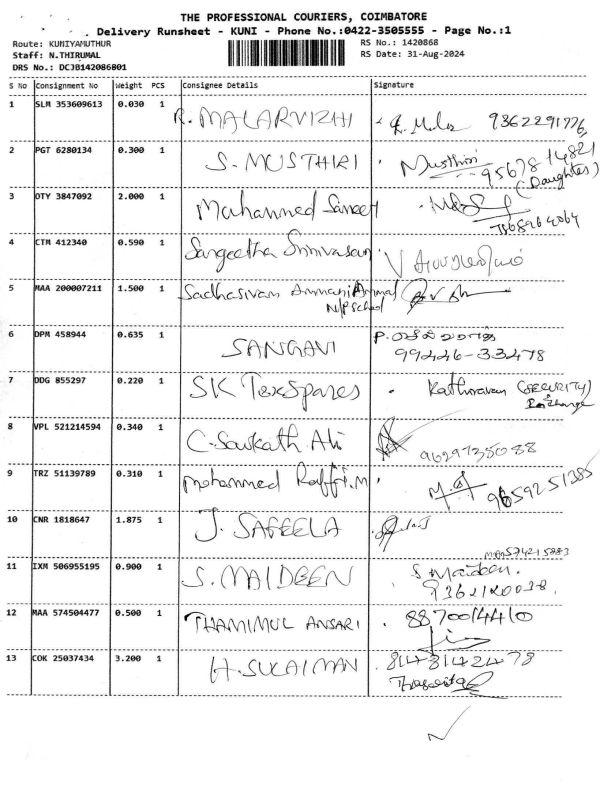 THE PROFESSIONAL COURIERS, COIMBATORE
Delivery Runsheet - KUNI - Phone No.:0422-3505555 - Page No.:1
Route: KUNIYAMUTHUR RS No.: 1420868
Staff: N.THIRUMAL RS Date: 31-Aug-2024
DRS No.: DCJB142086801
S No Consignment No Weight PCS Consignee Details Signature
1 SLM 353609613 0.030 1 R. MALARVIZHI 9362291776
2 PGT 6280134 0.300 1 S. MUSTHIRI Musthiri 9567814821
(Daughter)
3 OTY 3847092 2.000 1 Mohammed Sameer
4 CTM 412340 0.590 1 Sangeetha Srinivasan V
5 MAA 200007211 1.500 1 Sadhasivam Ammani Ammal
N/P School
6 DPM 458944 0.635 1 SANGAVI P.
99446-33478
7 DDG 855297 0.220 1 SK TexSpares Kathiravan (SECURITY)
8 VPL 521214594 0.340 1 C. Saukath Ali
9629735088
9 TRZ 51139789 0.310 1 Mohammed Raffi.M 9659251385
10 CNR 1818647 1.875 1 J. SAFEELA
11 IXM 506955195 0.900 1 S. MAIDEEN S Maideen.
12 MAA 574504477 0.500 1 THAMIMUL ANSARI 8870014410
13 COK 25037434 3.200 1 H. SULAIMAN 8143142478